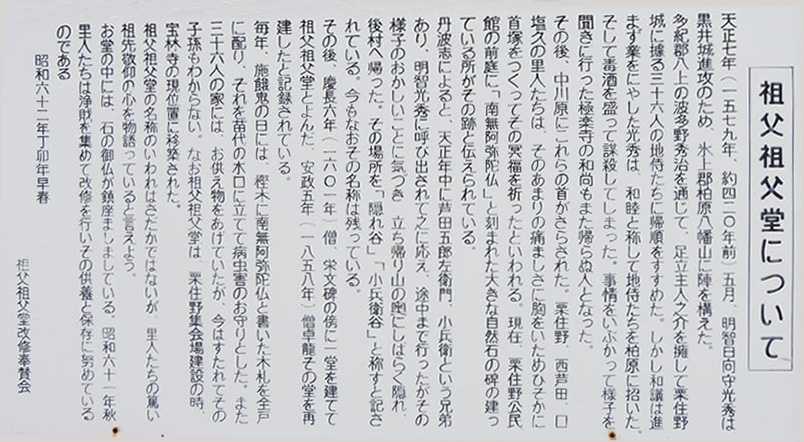 祖父祖父堂について
天正七年（一五七九年、約四二〇年前）五月、明智日向守光秀は
黒井城進攻のため、氷上郡柏原八幡山に陣を構えた。
多紀郡八上の波多野秀治を通じて、足立主人之介を擁して栗住野
城に據る三十六人の地侍たちに帰順をすすめた。しかし和議は進
まず業をにやした光秀は、和睦と称して地侍たちを柏原に招いた。
そして毒酒を盛って謀殺してしまった。事情をいぶかって様子を
聞きに行った極楽寺の和尚もまた帰らぬ人となった。
その後、中川原にこれらの首がさらされた。栗住野、西芦田、口
塩久の里人たちは、そのあまりの痛ましさに胸をいためひそかに
首塚をつくってその冥福を祈ったといわれる。現在、栗住野公民
館の前庭に、「南無阿弥陀仏」と刻まれた大きな自然石の碑の建っ
ている所がその跡と伝えられている。
丹波志によると、天正年中に芦田五郎左衛門、小兵衛という兄弟
あり、明智光秀に呼び出されて之に応え、途中まで行ったがその
様子のおかしいことに気づき、立ち帰り山の奥にしばらく隠れ、
後村へ帰った。その場所を、「隠れ谷」、「小兵衛谷」と称すと記さ
れている。今もなおその名称は残っている。
その後、慶長六年（一六〇一年）僧、栄文碑の傍に一堂を建てて
祖父祖父堂とよんだ、安政五年（一八五八年）僧卓龍その堂を再
建したと記録されている。
毎年、施餓鬼の日には、樫木に南無阿弥陀仏と書いた木札を全戸
に配り、それを苗代の水口に立てて病虫害のお守りとした。また
三十六人の家には、お供え物をあげていたが、今はすたれてその
子孫もわからない。なお祖父祖父堂は、栗住野集会場建設の時、
宝林寺の現位置に移築された。
祖父祖父堂の名称のいわれはさだかではないが、里人たちの篤い
祖先敬仰の心を物語っていると言えよう。
お堂の中には、石の御仏が鎮座ましましている。昭和六十一年秋
里人たちは浄財を集めて改修を行いその供養と保存に努めている
のである
昭和六十二年丁卯年早春
祖父祖父堂改修奉賛会